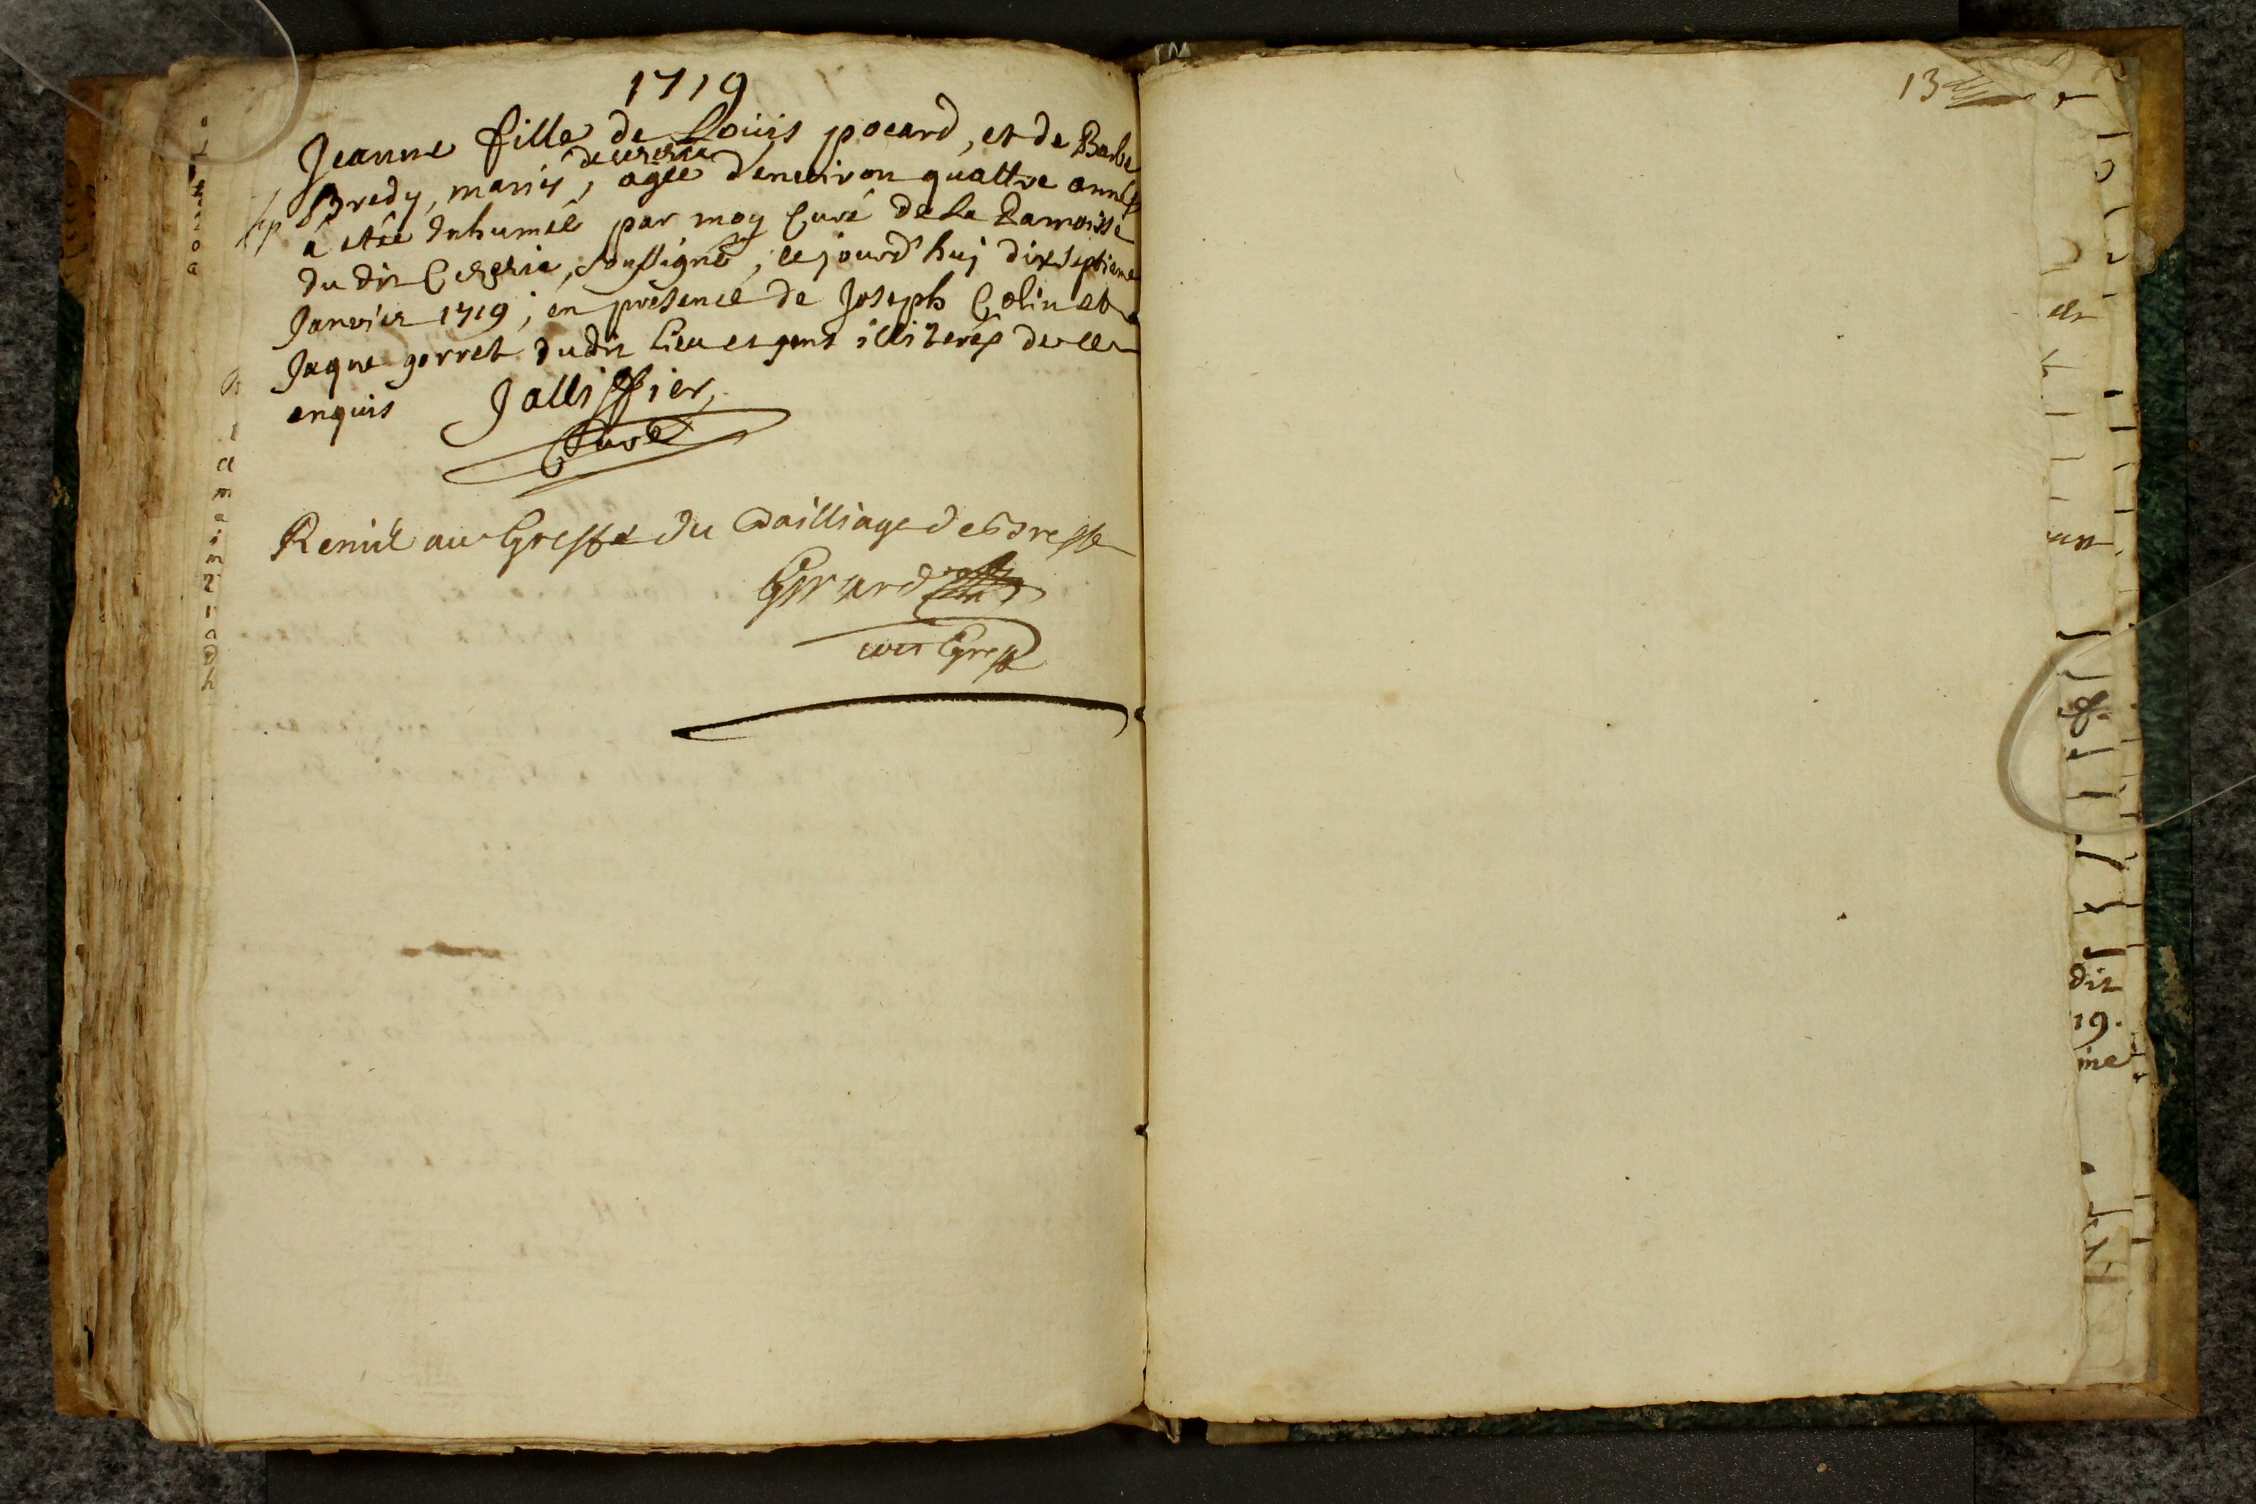 1719
Jeanne fille de Loüis pocard, et de Barbe
Bredy, mariés, de Ceyzeria agée d'enuiron quattre années
à étée Inhumée par moy Curé de La Parroisse
du dit Ceyzeria, soussigné, ce jourd'huj dixseptieme
Januier 1719, en présence de Joseph Colin et
Jaque gorret dudit Lieu et gens illiterés de ce
enquis Jalliffier,
Curé
Remis au Greffe du Bailliage de Bresse
Girard
Greff
13
dit
19.
me